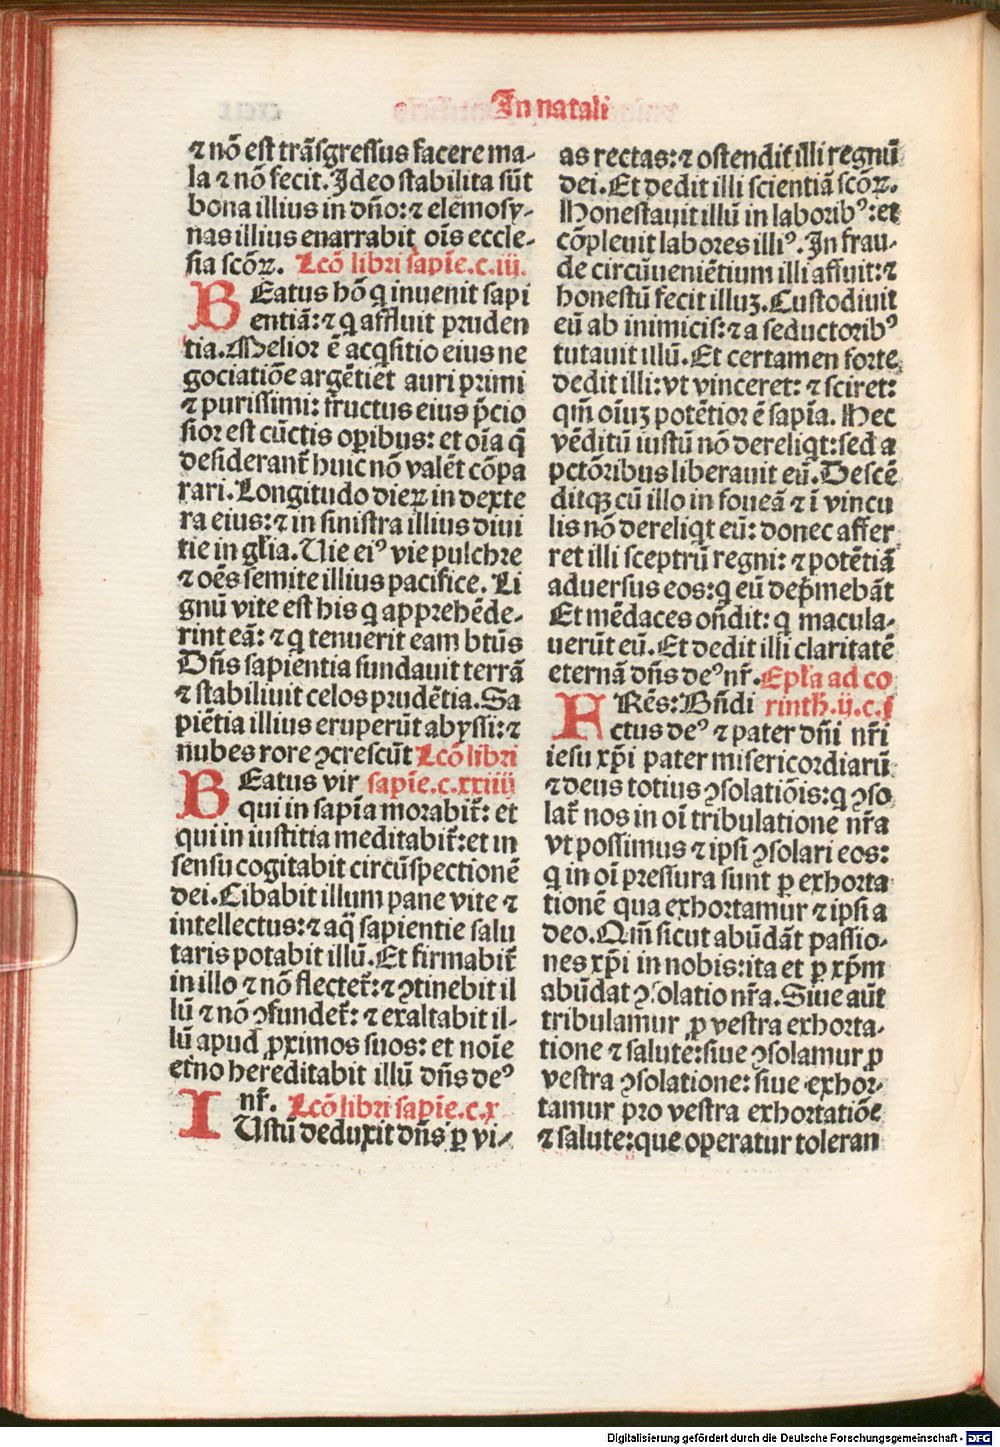 In natali
⁊ nõ est trãsgressus facere ma-
la ⁊ nõ fecit. Ideo stabilita sũt
bona illius in dño: ⁊ elemosy-
nas illius enarrabit oĩs eccle-
sia scõꝝ. Lcõ libri sapiẽ.c.iij.
BEatus hõ q̃ inuenit sapi
entiã: ⁊ q̃ affluit pruden
tia. Melior ẽ acq̃sitio eius ne
gociatiõe argẽti et auri primi
⁊ purissimi: fructus eius p̃cio
sior est cũctis opibus: et oĩa q̃
desiderant̃ huic nõ valẽt cõpa
rari. Longitudo dieꝝ in dexte
ra eius: ⁊ in sinistra illius diui
tie in gl̃ia. Uie eiꝰ vie pulchre
⁊ oẽs semite illius pacifice. Li
gnũ vite est his q̃ apprehẽde-
rint eã: ⁊ q̃ tenuerit eam btũs
Dñs sapientia fundauit terrã
⁊ stabiliuit celos prudẽtia. Sa
piẽtia illius eruperũt abyssi: ⁊
nubes rore ꝯcrescũt Lcõ libri
BEatus vir sapiẽ.c.xxiiij
qui in sapĩa morabit̃: et
qui in iustitia meditabit̃: et in
sensu cogitabit circũspectionẽ
dei. Cibabit illum pane vite ⁊
intellectus: ⁊ aq̃ sapientie salu
taris potabit illũ. Et firmabit̃
in illo ⁊ nõ flectet̃: ⁊ ꝯtinebit il
lũ ⁊ nõ ꝯfundet̃: ⁊ exaltabit il-
lũ apud ꝓximos suos: et noĩe
et̃no hereditabit illũ dñs deꝰ
nr̃. Lcõ libri sapiẽ.c.x
IUstũ deduxit dñs ꝑ vi-
as rectas: ⁊ ostendit̃ illi regnũ
dei. Et dedit illi scientiã scõꝝ.
Honestauit illũ in laboribꝰ: et
cõpleuit labores illiꝰ. In frau-
de circũueniẽtium illi affuit: ⁊
honestũ fecit illuʒ. Custodiuit
eũ ab inimicis: ⁊ a seductoribꝰ
tutauit illũ. Et certamen forte
dedit illi: vt vinceret: ⁊ sciret:
qm̃ oĩuʒ potẽtior ẽ sapĩa. Hec
vẽditũ iustũ nõ dereliq̃t: sed a
pctõribus liberauit eũ. Descẽ
ditqʒ cũ illo in foueã ⁊ ĩ vincu
lis nõ dereliq̃t eũ: donec affer
ret illi sceptrũ regni: ⁊ potẽtiã
aduersus eos: q̃ eũ dep̃mebãt
Et mẽdaces oñdit: q̃ macula-
uerũt eũ. Et dedit illi claritatẽ
eternã dñs deꝰ nr̃. Epl̃a ad co
FRẽs: Bñdi rinth̃.ij.c.j
ctus deꝰ ⁊ pater dñi nr̃i
iesu xp̃i pater misericordiarũ
⁊ deus totius ꝯsolatiõis: q̃ ꝯso
lat̃ nos in oĩ tribulatione nr̃a
vt possimus ⁊ ipsi ꝯsolari eos:
q̃ in oĩ pressura sunt ꝑ exhorta
tionẽ qua exhortamur ⁊ ipsi a
deo. Qm̃ sicut abũdãt passio-
nes xp̃i in nobis: ita et ꝑ xp̃m
abũdat ꝯsolatio nr̃a. Siue aũt
tribulamur ꝓ vestra exhorta-
tione ⁊ salute: siue ꝯsolamur ꝓ
vestra ꝯsolatione: siue exhor-
tamur pro vestra exhortatiõe
⁊ salute: que operatur toleran
Digitalisierung gefördert durch die Deutsche Forschungsgemeinschaft - DFG